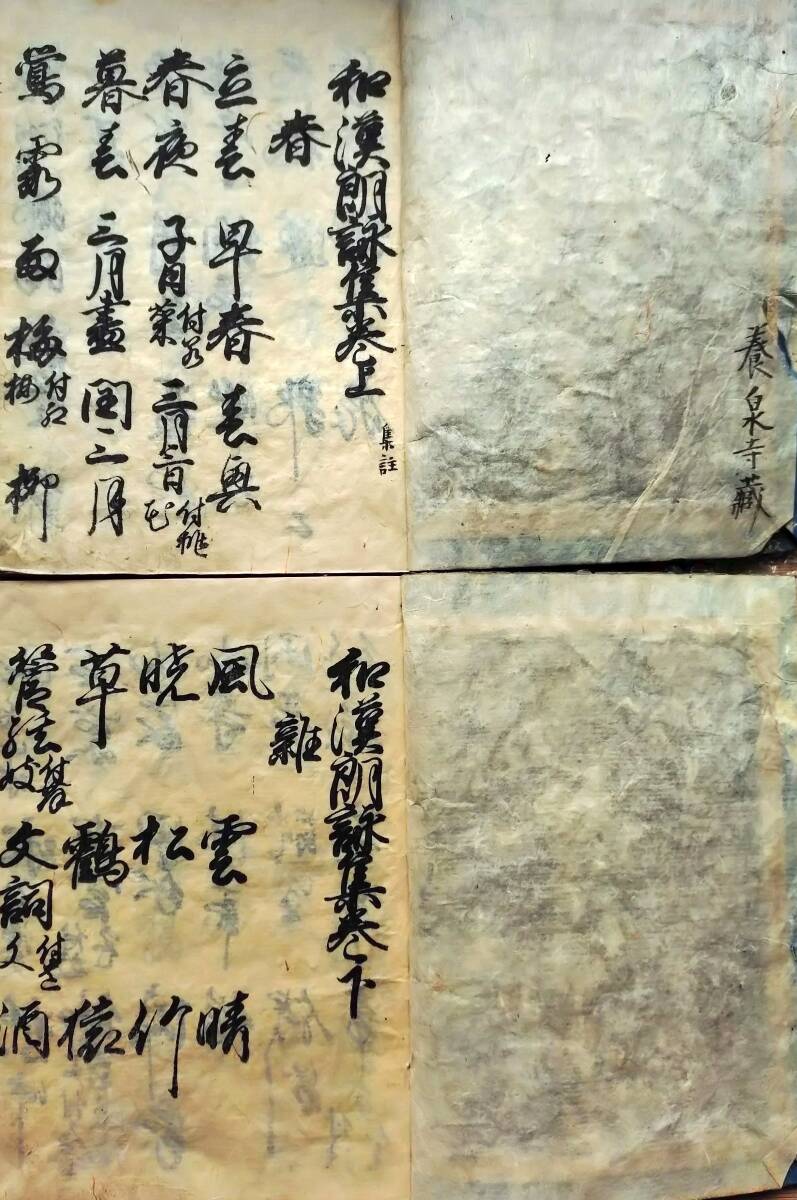 養泉寺藏
和漢朗詠集卷上
集註
春
立春 早春 春興
春夜 子日 付若菜 三月三日 付桃花
暮春 三月盡 閏三月
鶯 霞 雨 梅 付紅梅 柳
和漢朗詠集卷下
雜
風 雲 晴
曉 松 竹
草 鶴 猿
管絃 付舞妓 文詞 付遺文 酒